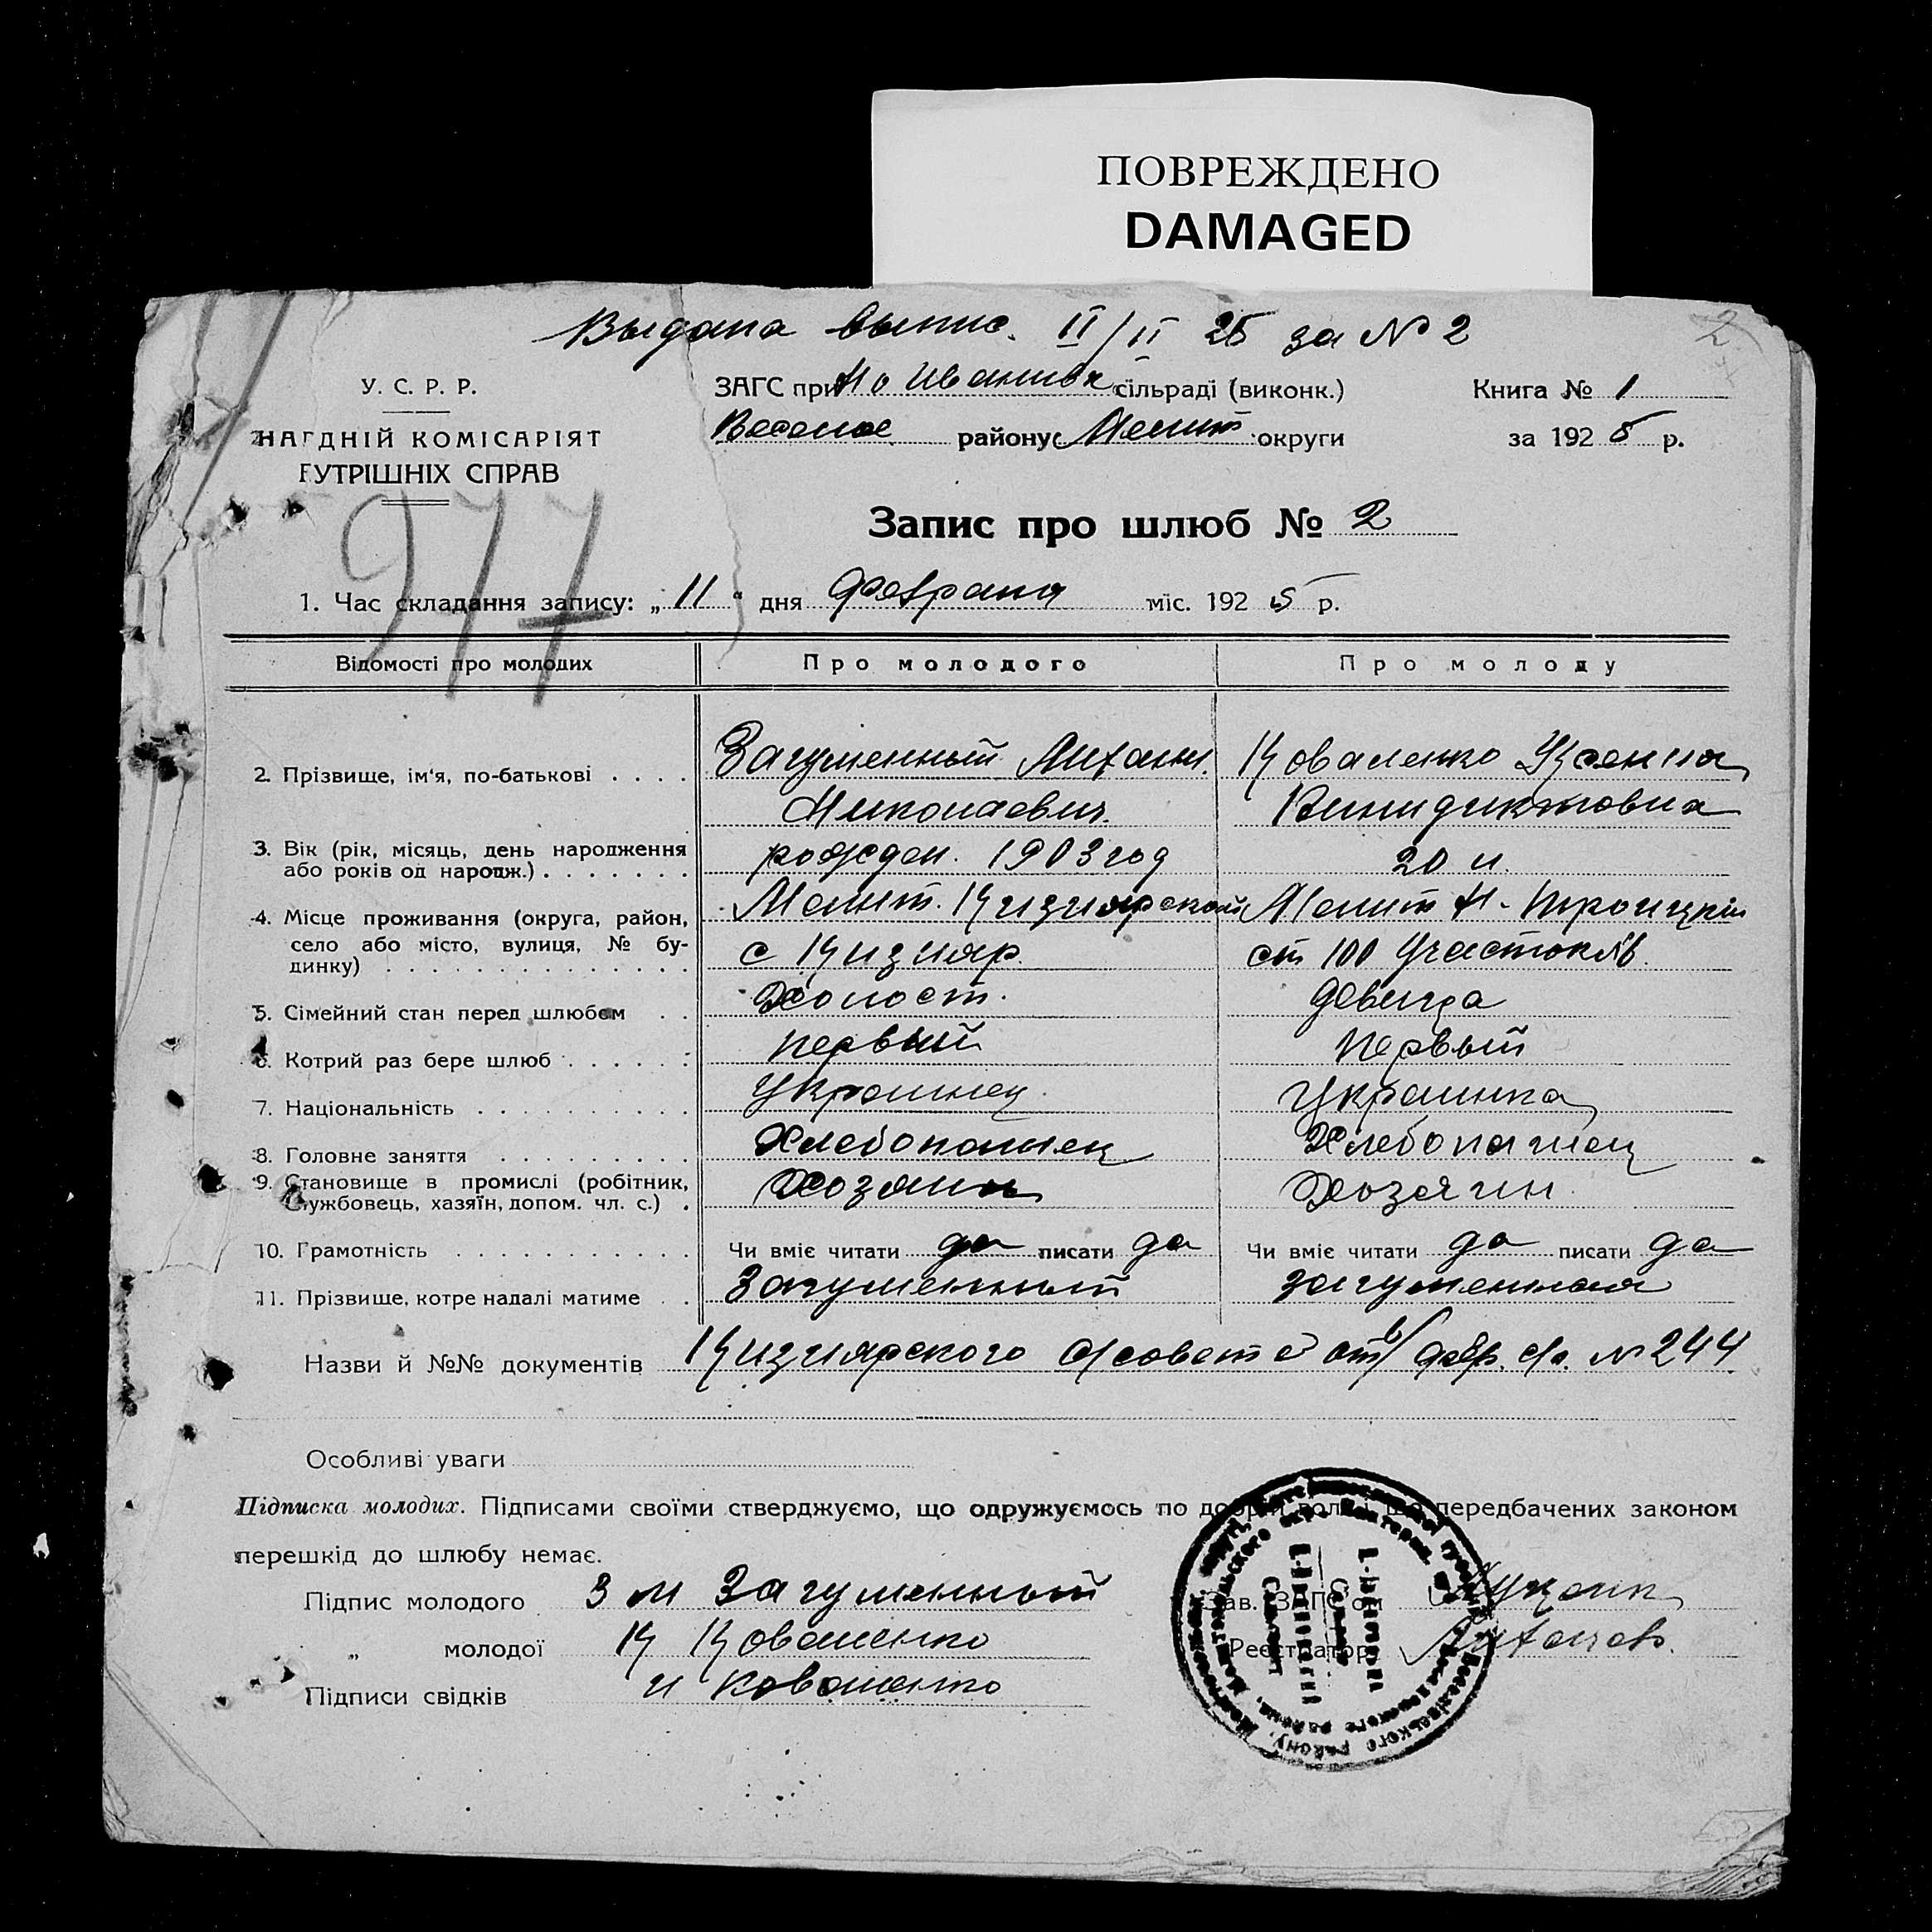 ПОВРЕЖДЕНО
DAMAGED
Выдана выпис. II/II 25 за № 2
2
У. С. Р. Р.
ЗАГС при Но Ивановск сільраді (виконк.)
Книга № 1
НАРОДНІЙ КОМІСАРІЯТ
Веселое району Мелит округи
за 1925 р.
УТРІШНІХ СПРАВ
977
Запис про шлюб № 2
1. Час складання запису: „11“ дня Февраля міс. 1925 р.
Відомості про молодих Про молодого Про молоду
2. Прізвище, ім'я, по-батькові Загуменный Коваленко Ксения
Николаевич Винидиктовна
3. Вік (рік, місяць, день народження
або років од народж.) рожден. 1903 год 20 л.
4. Місце проживання (округа, район, Мелит. Кизиярской Мелит Н-Троицкий
село або місто, вулиця, № бу-
динку) с Кизияр. 100 Участков
5. Сімейний стан перед шлюбом Холост. девица
6. Котрий раз бере шлюб первый первый
7. Національність Украинец Украинка
8. Головне заняття Хлебопашец Хлебопашец
9. Становище в промислі (робітник,
службовець, хазяїн, допом. чл. с.) Хозяин Хозяин
10. Грамотність Чи вміє читати да писати да Чи вміє читати да писати да
11. Прізвище, котре надалі матиме Загуменный Загуменная
Назви й №№ документів Кизиярского с/совета от февр. № 244
Особливі уваги
Підписка молодих. Підписами своїми стверджуємо, що одружуємось по добрій волі і що передбачених законом
перешкід до шлюбу немає.
Підпис молодого З М Загуменный
Зав. ЗАГС'ом
„ молодої К Коваленко
Реєстратор
Підписи свідків и Коваленко